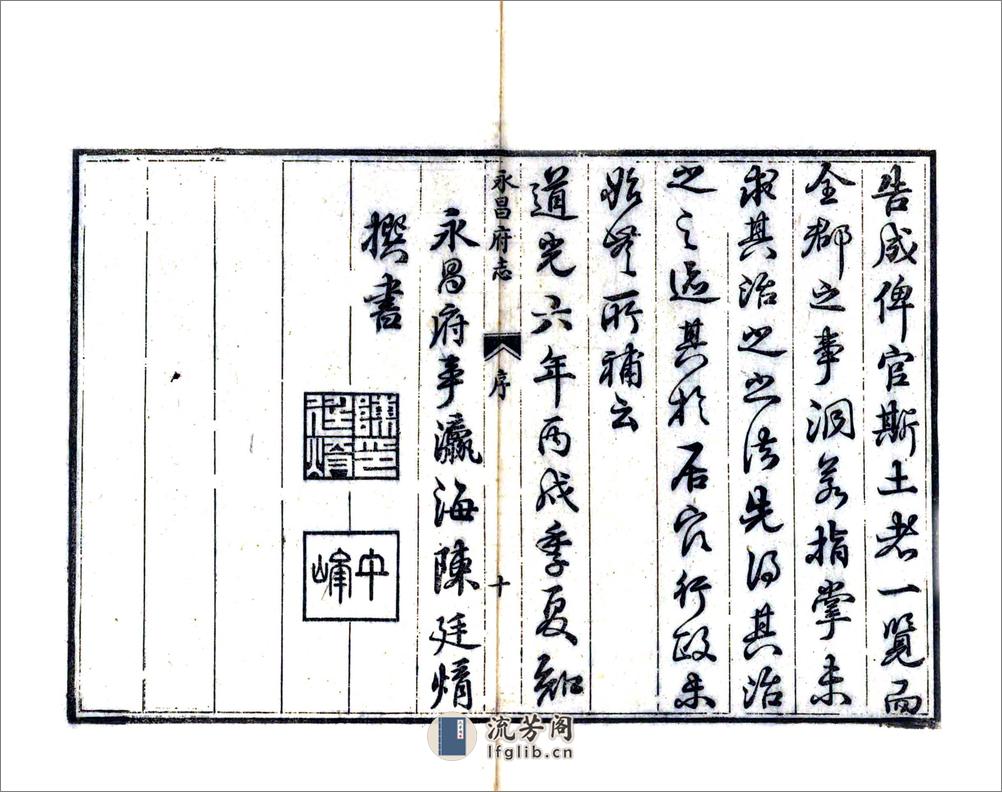 告成俾官斯土者一覽而
全郡之事洞若指掌未
求其治之之法先得其治
之之迹其於居官行政未
始無所補云
道光六年丙戌季夏知
永昌府志
序
十
永昌府事瀛海陳廷焴
撰書
陳廷焴印
峰
流芳阁
lfglib.cn